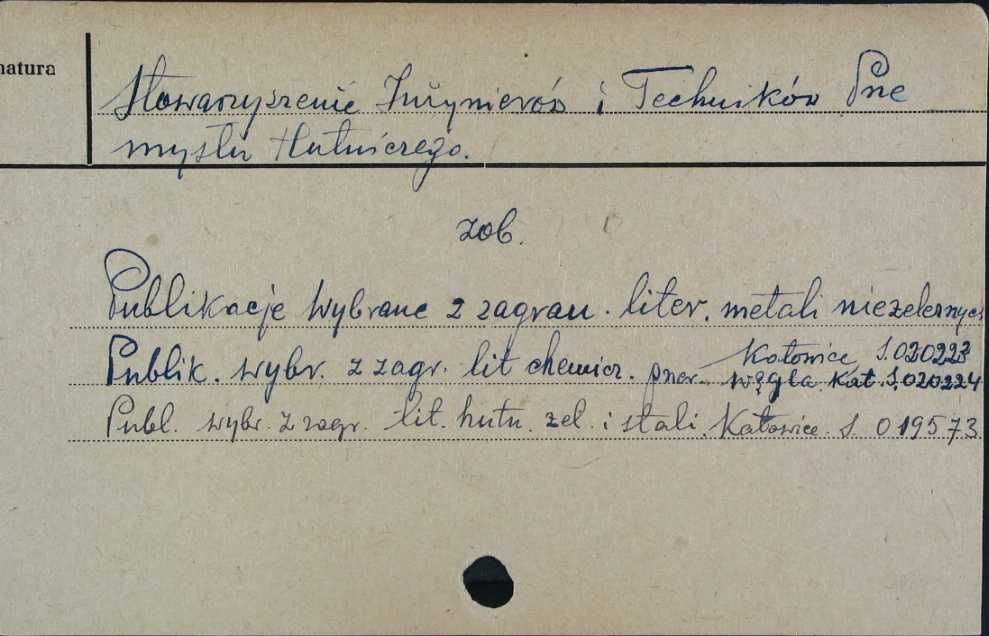 natura
Stowarzyszenie Inżynierów i Techników Prze
mysłu Hutniczego.
zob.
Publikacje wybrane z zagran. liter. metali nieżelaznych
Katowice S.020223
Publik. wybr. z zagr. lit chemicz. przer. węgla Kat. S.020224
Publ. wybr. z zagr. lit. hutn. żel. i stali. Katowice. S 019573